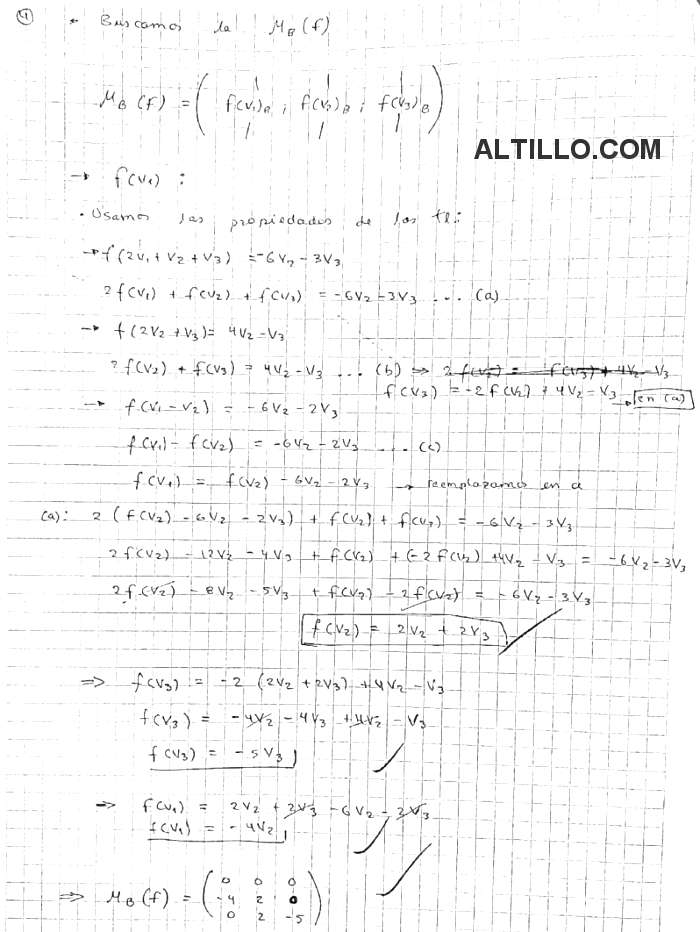 4)
• Buscamos la M_B(f)
M_B(f) = ( f(v1)_B ; f(v2)_B ; f(v3)_B )
ALTILLO.COM
→ f(v1) :
• Usamos las propiedades de las tl:
→ f(2v1 + v2 + v3) = -6v2 - 3v3
2f(v1) + f(v2) + f(v3) = -6v2 - 3v3 ... (a)
→ f(2v2 + v3) = 4v2 - v3
2f(v2) + f(v3) = 4v2 - v3 ... (b) ⇒ 2f(v2) = -f(v3) + 4v2 - v3
f(v3) = -2f(v2) + 4v2 - v3 → en (a)
→ f(v1 - v2) = -6v2 - 2v3
f(v1) - f(v2) = -6v2 - 2v3 ... (c)
f(v1) = f(v2) - 6v2 - 2v3 → reemplazamos en a
(a): 2(f(v2) - 6v2 - 2v3) + f(v2) + f(v3) = -6v2 - 3v3
2f(v2) - 12v2 - 4v3 + f(v2) + (-2f(v2) + 4v2 - v3 = -6v2 - 3v3
2f(v2) - 8v2 - 5v3 + f(v2) - 2f(v2) = -6v2 - 3v3
f(v2) = 2v2 + 2v3
⇒ f(v3) = -2(2v2 + 2v3) + 4v2 - v3
f(v3) = -4v2 - 4v3 + 4v2 - v3
f(v3) = -5v3
⇒ f(v1) = 2v2 + 2v3 - 6v2 - 2v3
f(v1) = -4v2
⇒ M_B(f) = ( 0 0 0
-4 2 0
0 2 -5 )